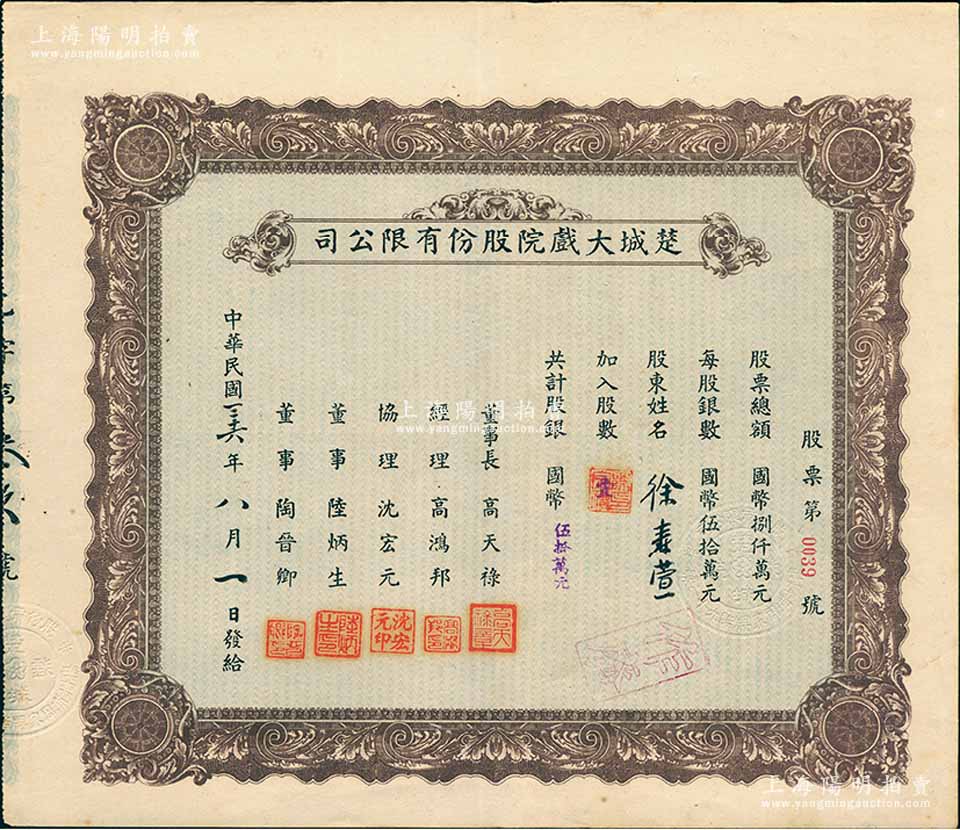 上海陽明拍賣
www.yangmingauction.com
楚城大戲院股份有限公司
股票第 0039 號
股票總額 國幣捌仟萬元
每股銀數 國幣伍拾萬元
股東姓名 徐萱
加入股數 壹
共計股銀 國幣 伍拾萬元
董事長 高天祿
經理 高鴻邦
協理 沈宏元
董事 陸炳生
董事 陶晉卿
中華民國 年八月一日發給
沈宏元印
上海陽明拍賣
www.yangmingauction.com
上海陽明拍賣
www.yangmingauction.com